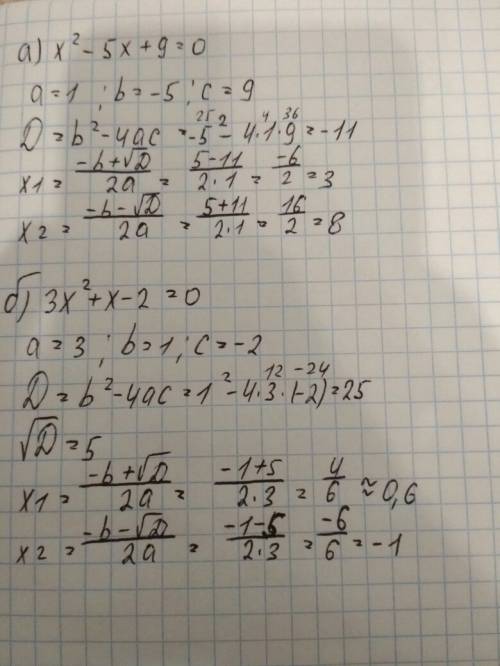 а) x² - 5x + 9 = 0
a = 1 ; b = -5 ; c = 9
D = b² - 4ac = -5² - 4·1·9 = -11
25 4 36
x1 = (-b+√D)/2a = (5-11)/(2·1) = -6/2 = 3
x2 = (-b-√D)/2a = (5+11)/(2·1) = 16/2 = 8
б) 3x² + x - 2 = 0
a = 3 ; b = 1 ; c = -2
D = b² - 4ac = 1² - 4·3·(-2) = 25
12 -24
√D = 5
x1 = (-b+√D)/2a = (-1+5)/(2·3) = 4/6 ≈ 0,6
x2 = (-b-√D)/2a = (-1-5)/(2·3) = -6/6 = -1